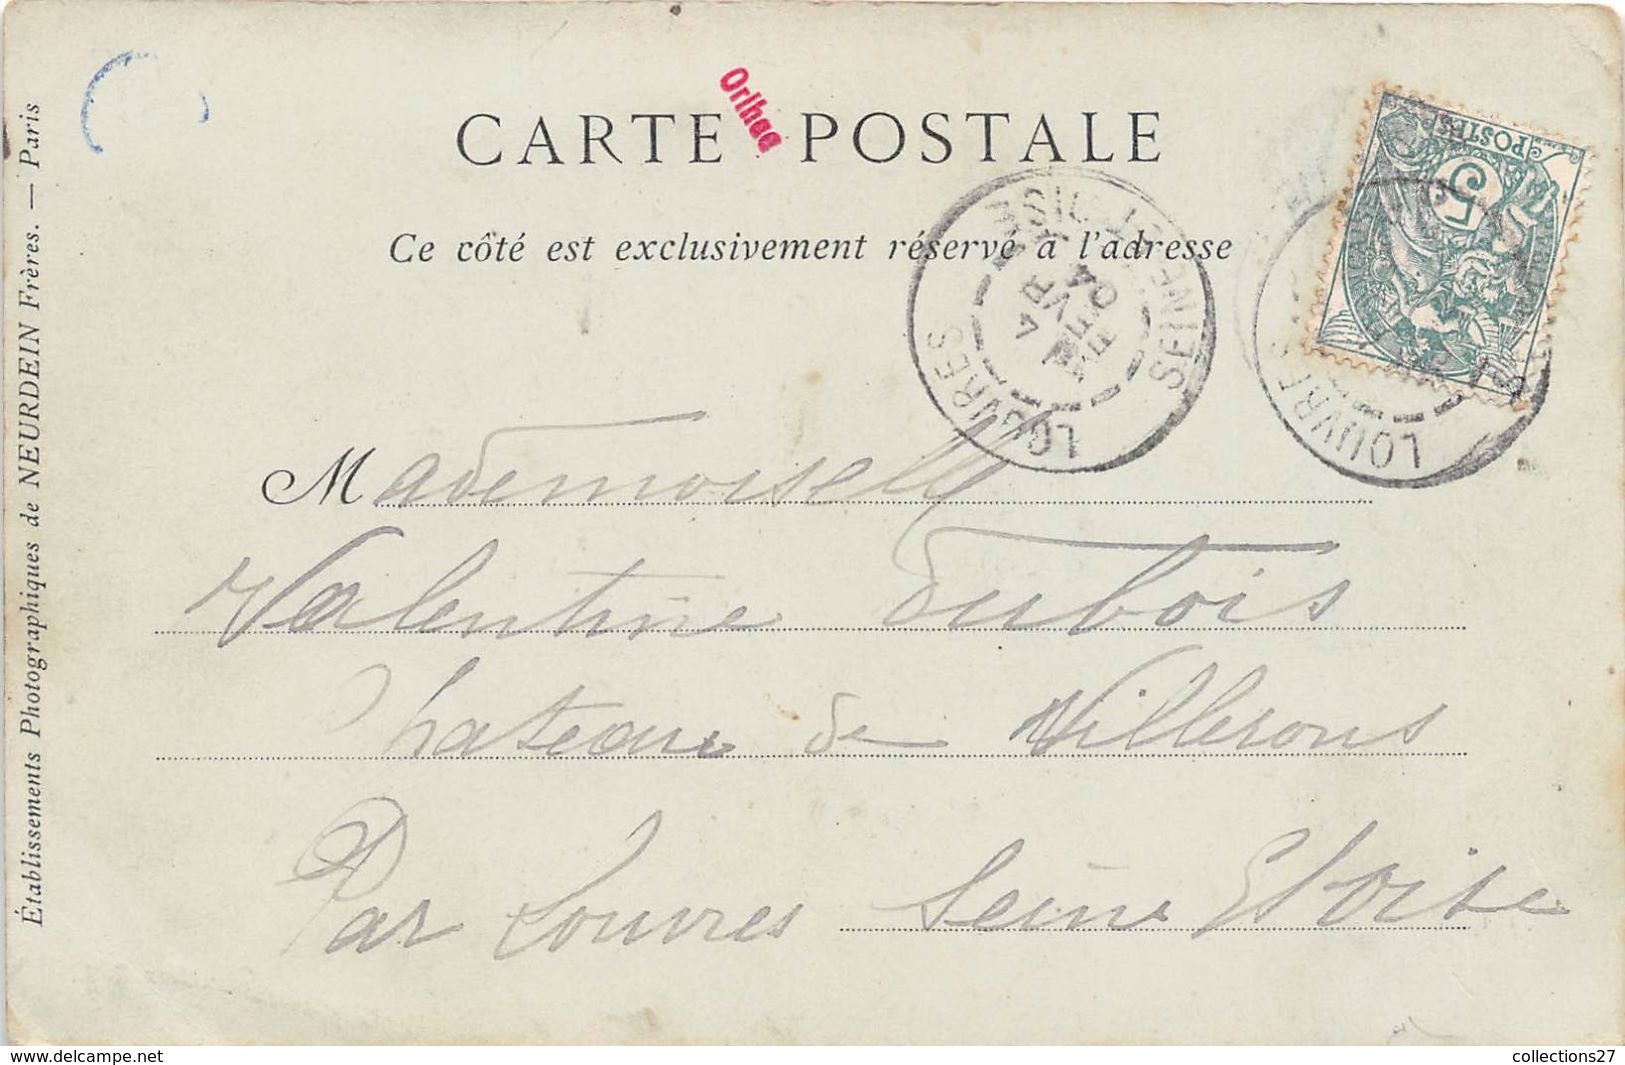 Orlhac
CARTE POSTALE
Ce côté est exclusivement réservé à l'adresse
POSTES
5
LOUVRES
SEINE ET OISE
LOUVRES
Mademoiselle
Valentine Dubois
Chateau de Villerons
Par Louvres Seine Et Oise
Établissements Photographiques de NEURDEIN Frères. — Paris
www.delcampe.net
collections27